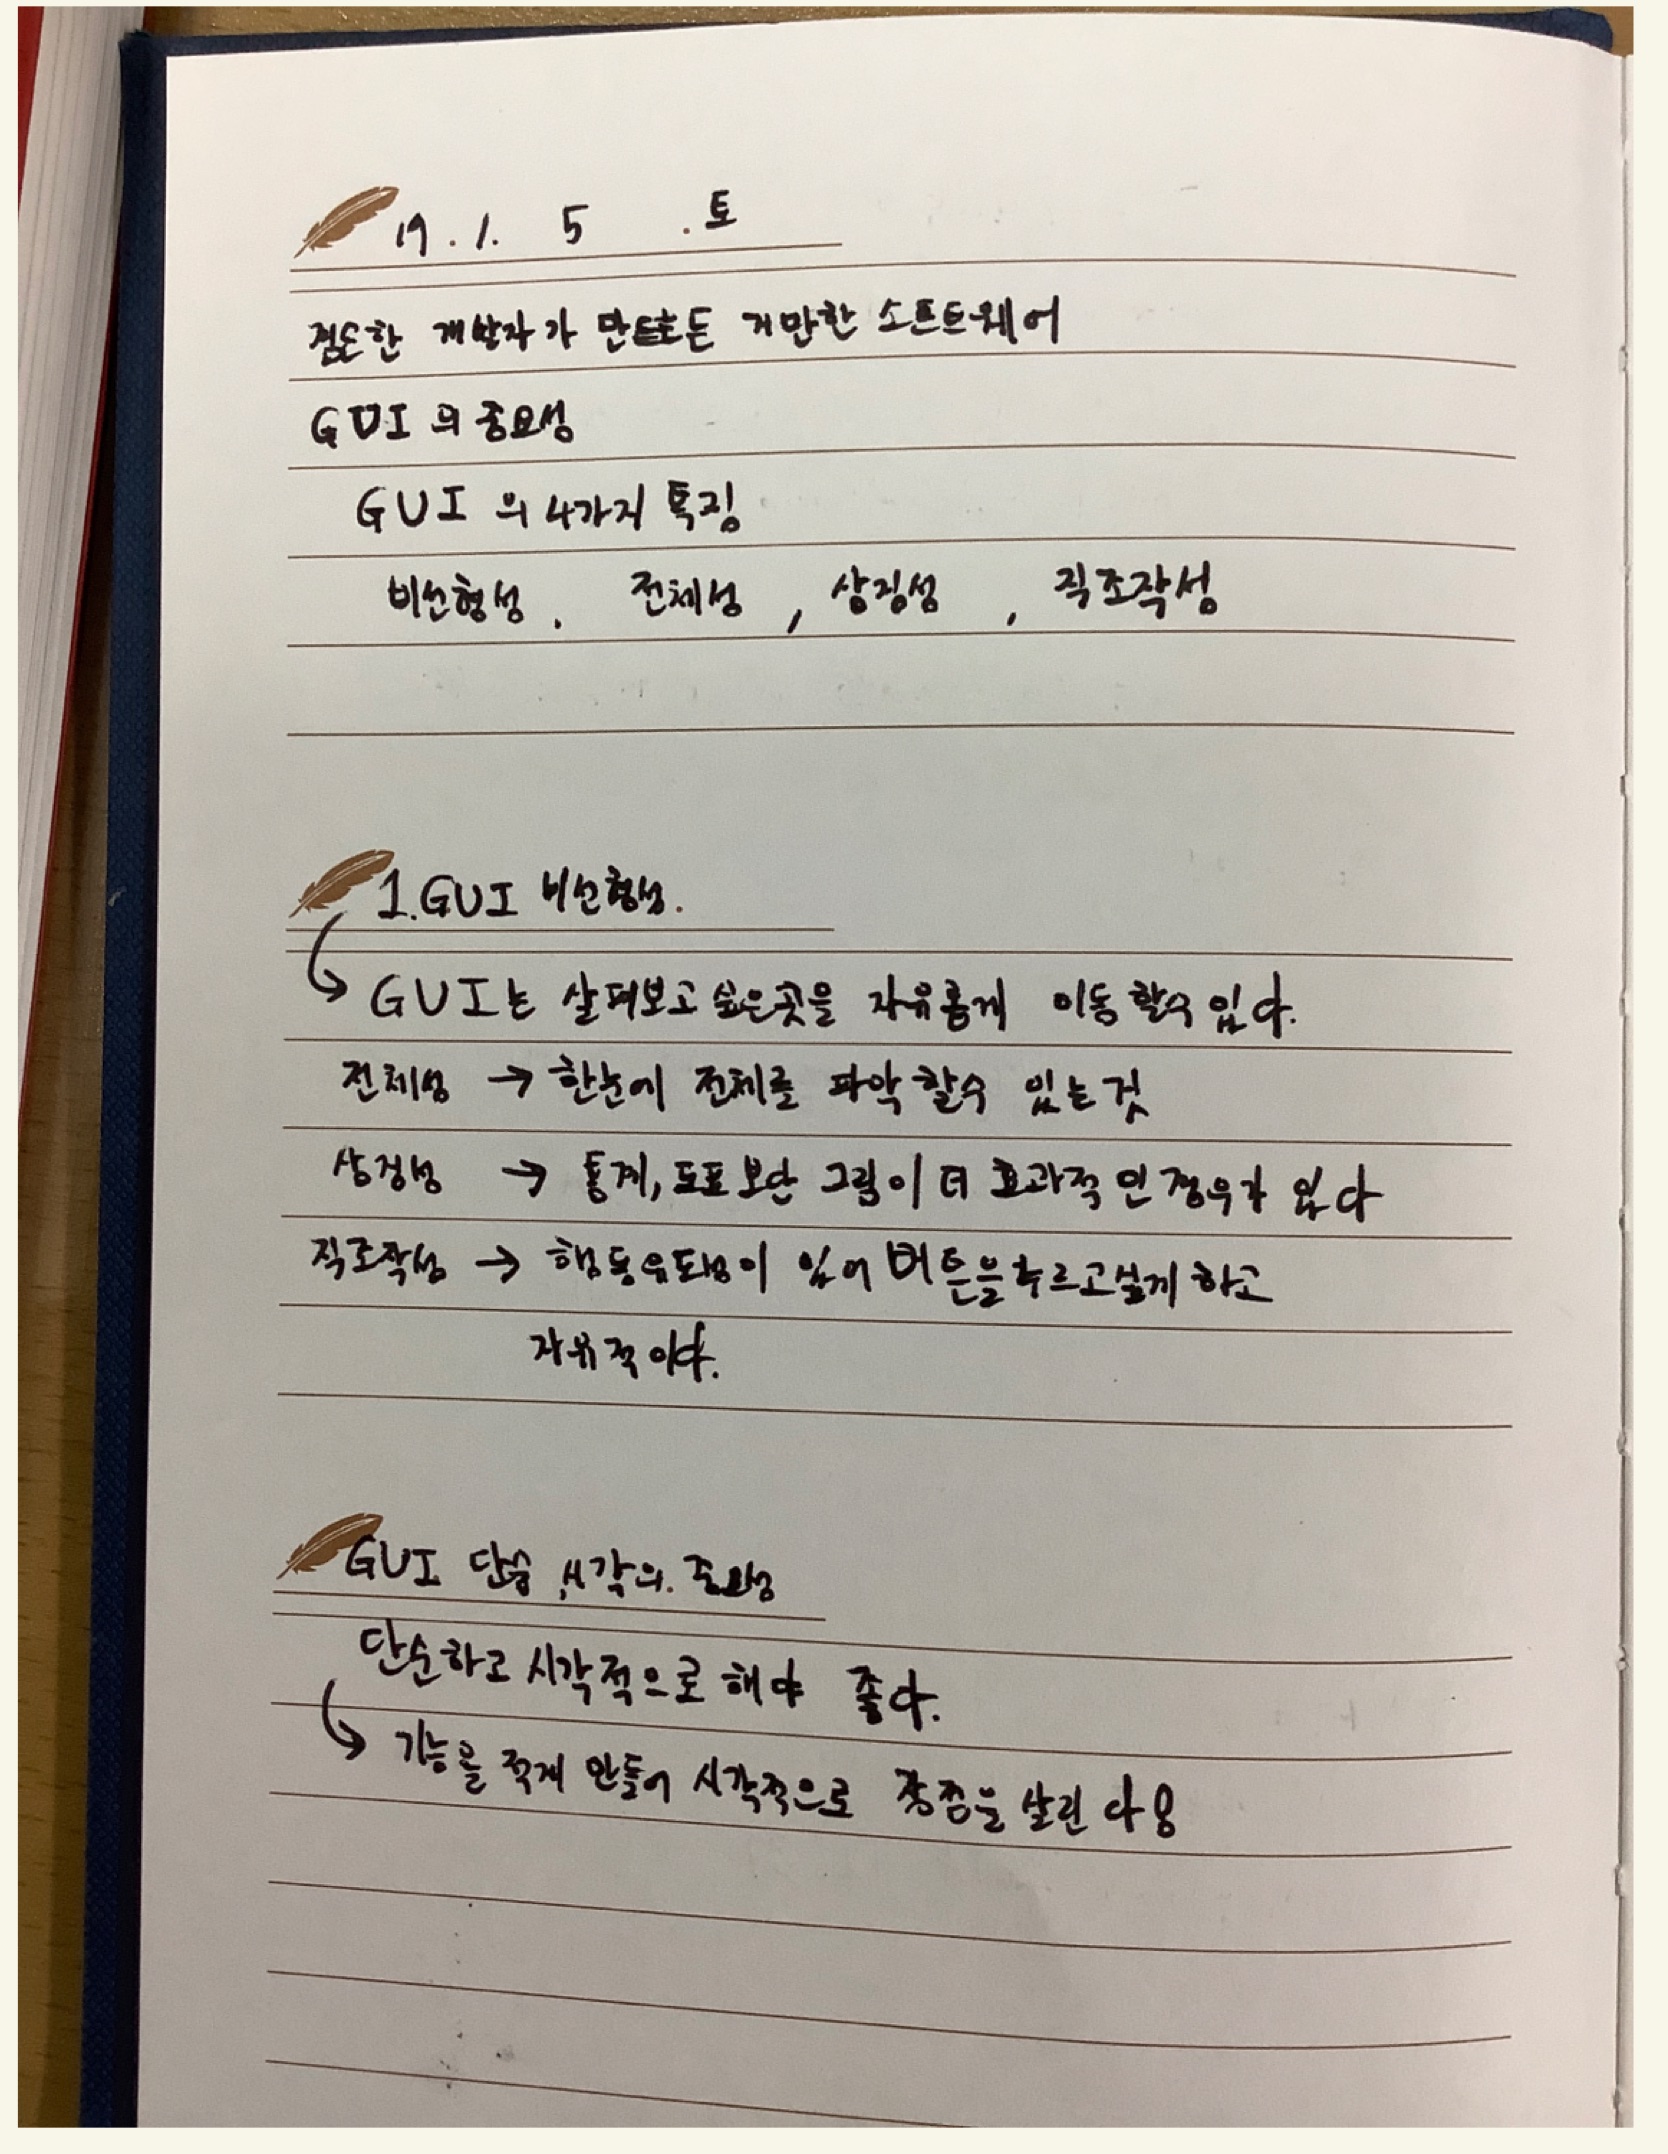 19.1. 5 .토
겸손한 개발자가 만든 거만한 소프트웨어
GUI의 중요성
GUI의 4가지 특징
비선형성, 전체성, 상징성, 직조작성
1.GUI 비선형성.
GUI는 살펴보고 싶은곳을 자유롭게 이동할수있다.
전체성 → 한눈에 전체를 파악할수 있는것
상징성 → 통계,도표보단 그림이 더 효과적인 경우가 있다
직조작성 → 행동유도성이 있어 버튼을 누르고싶게 하고
자유적이다.
GUI 단순,시각의. 중요성
단순하고 시각적으로 해야 좋다.
기능을 적게 만들어 시각적으로 장점을 살린다